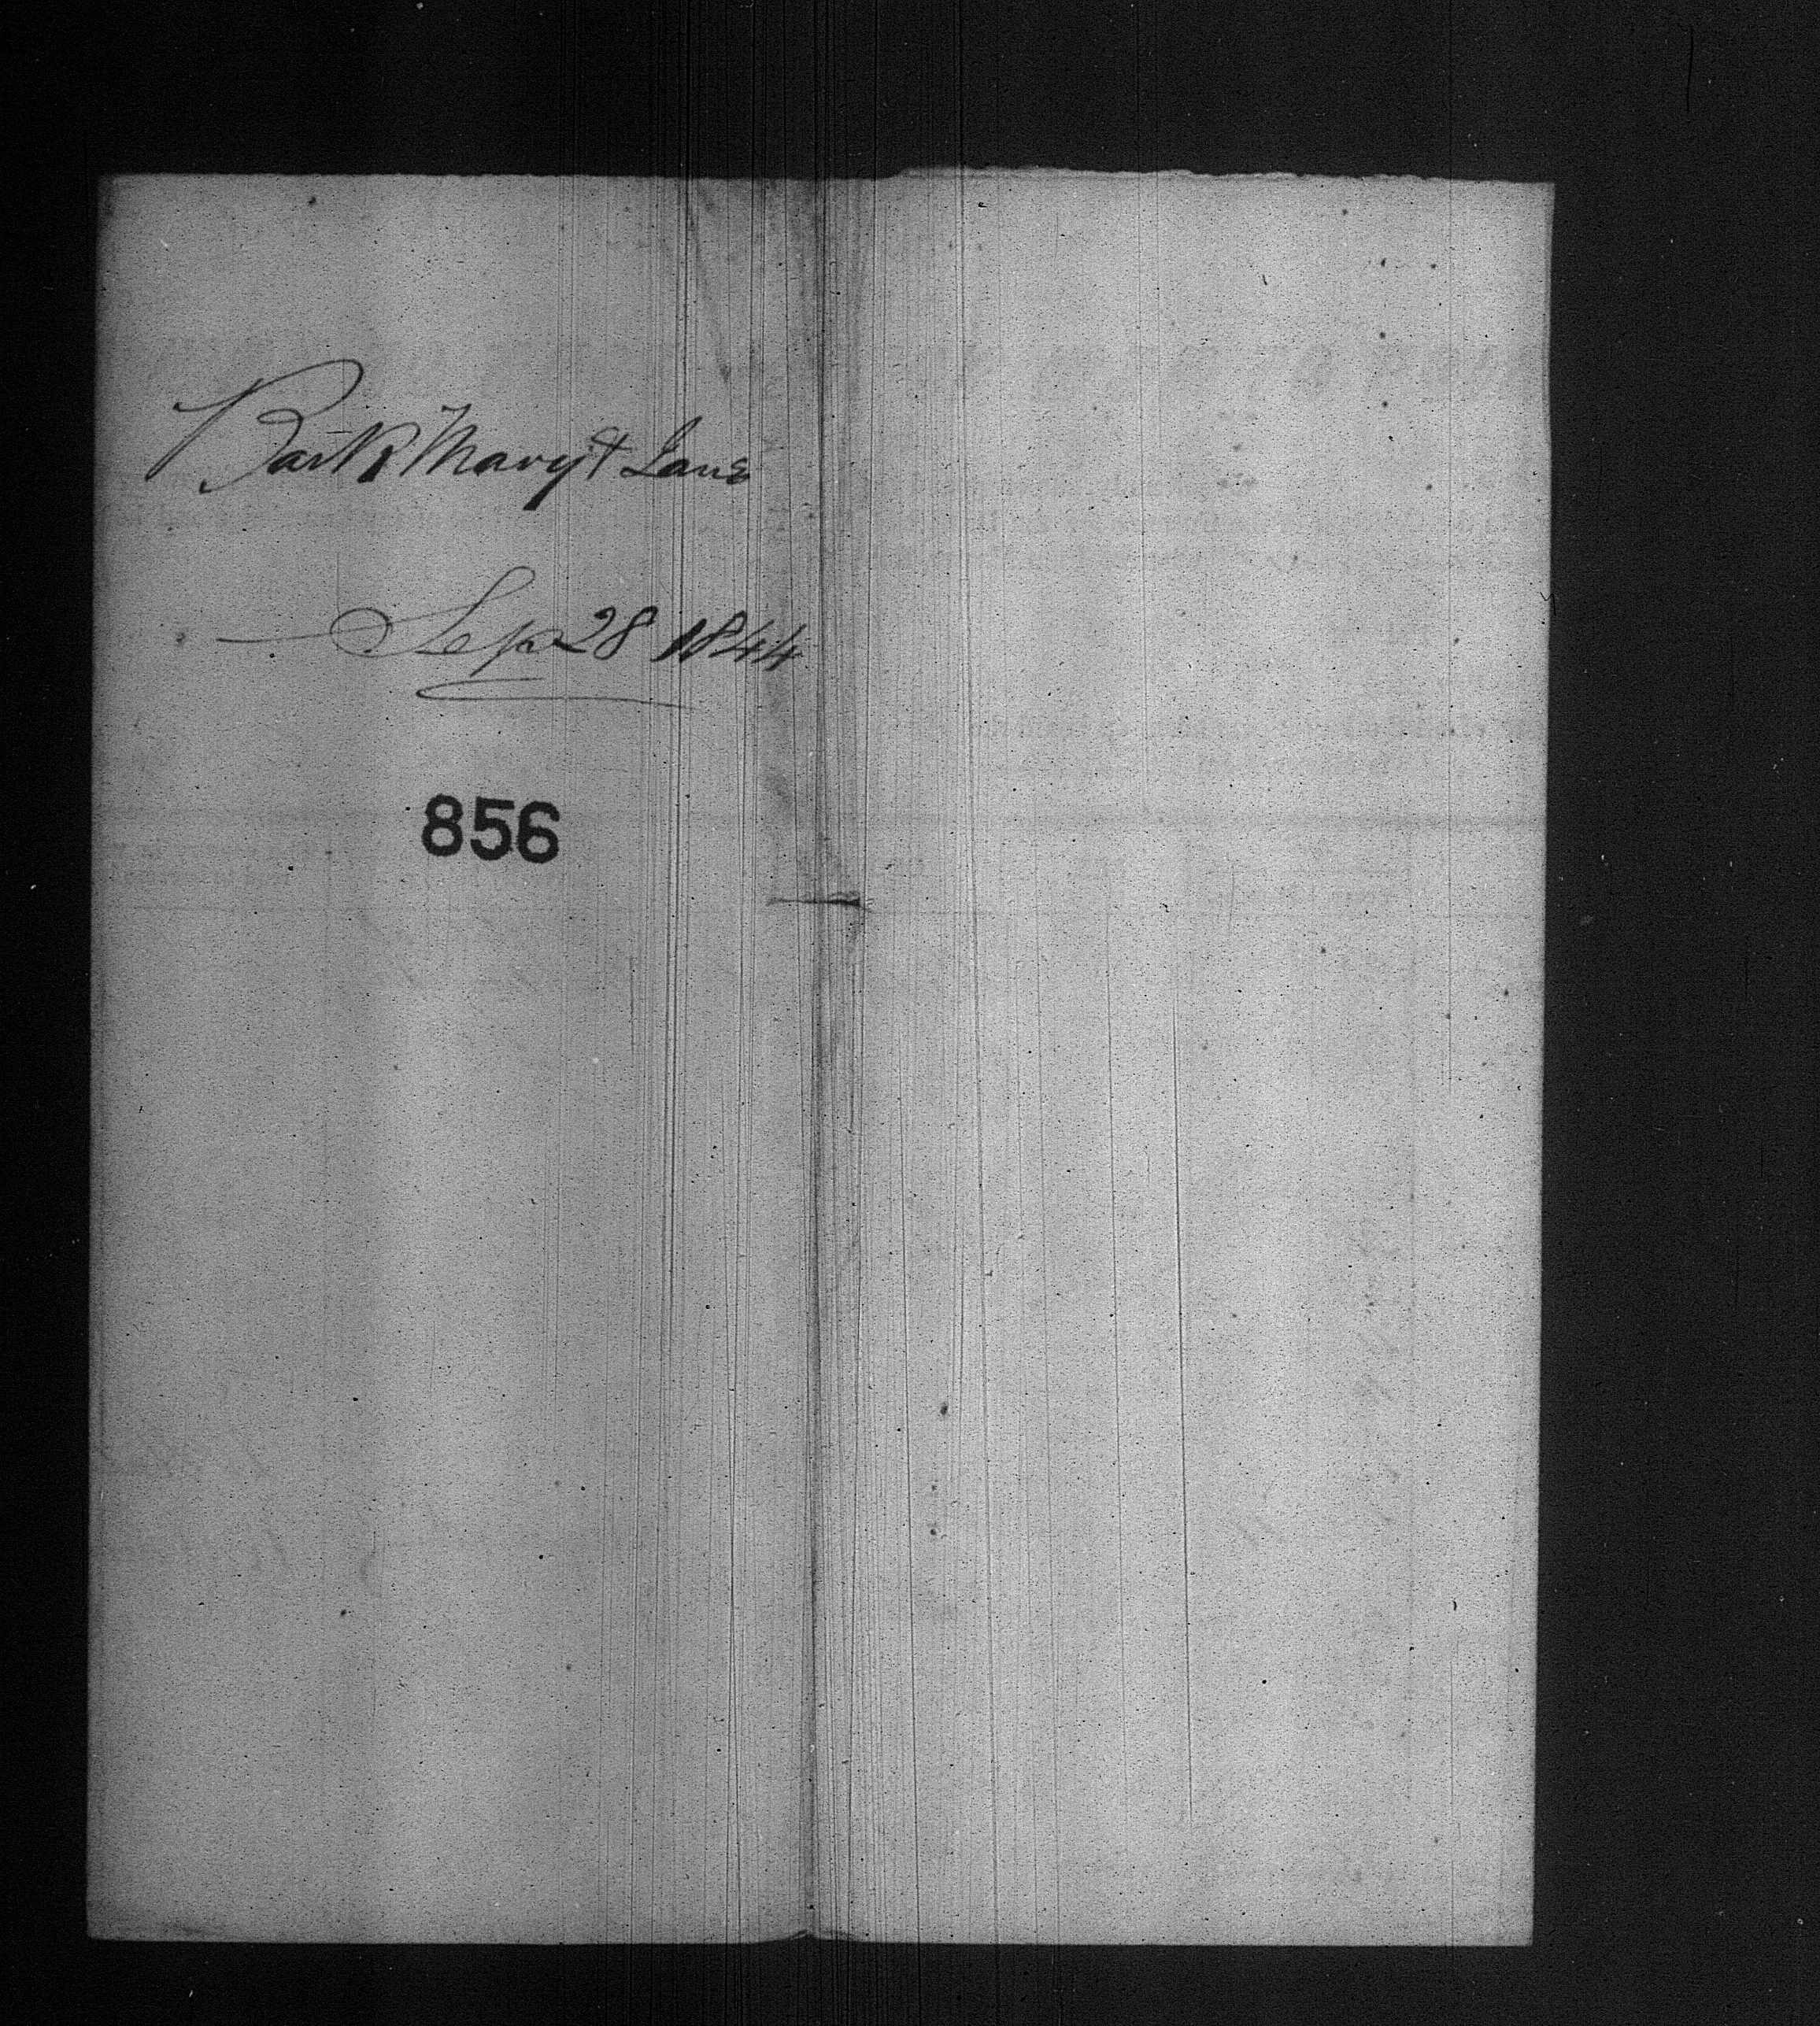 Bark Mary & Jane
Sep 28 1844
856